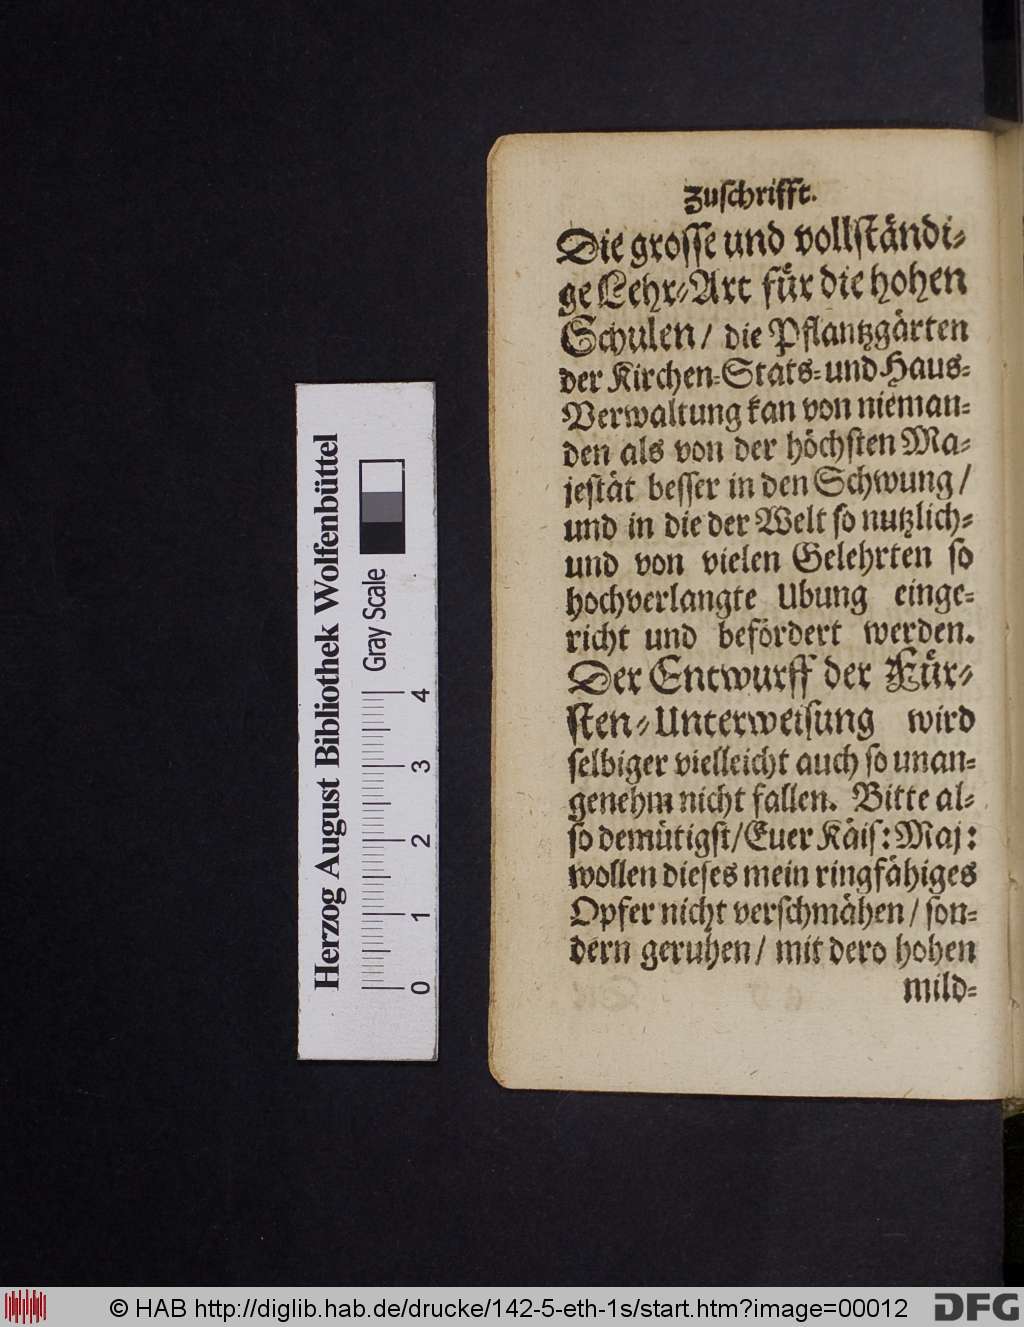 Zuschrifft.
Die grosse und vollständi-
ge Lehr-Art für die hohen
Schulen / die Pflantzgärten
der Kirchen-Stats-und-Haus-
Verwaltung kan von nieman-
den als von der höchsten Ma-
jestät besser in den Schwung /
und in die der Welt so nutzlich-
und von vielen Gelehrten so
hochverlangte Ubung einge-
richt und befördert werden.
Der Entwurff der Für-
sten-Unterweisung wird
selbiger vielleicht auch so unan-
genehm nicht fallen. Bitte al-
so demütigst / Euer Käis: Maj:
wollen dieses mein ringfähiges
Opfer nicht verschmähen / son-
dern geruhen / mit dero hohen
mild-
Herzog August Bibliothek Wolfenbüttel
Gray Scale
0 1 2 3 4
© HAB http://diglib.hab.de/drucke/142-5-eth-1s/start.htm?image=00012
DFG